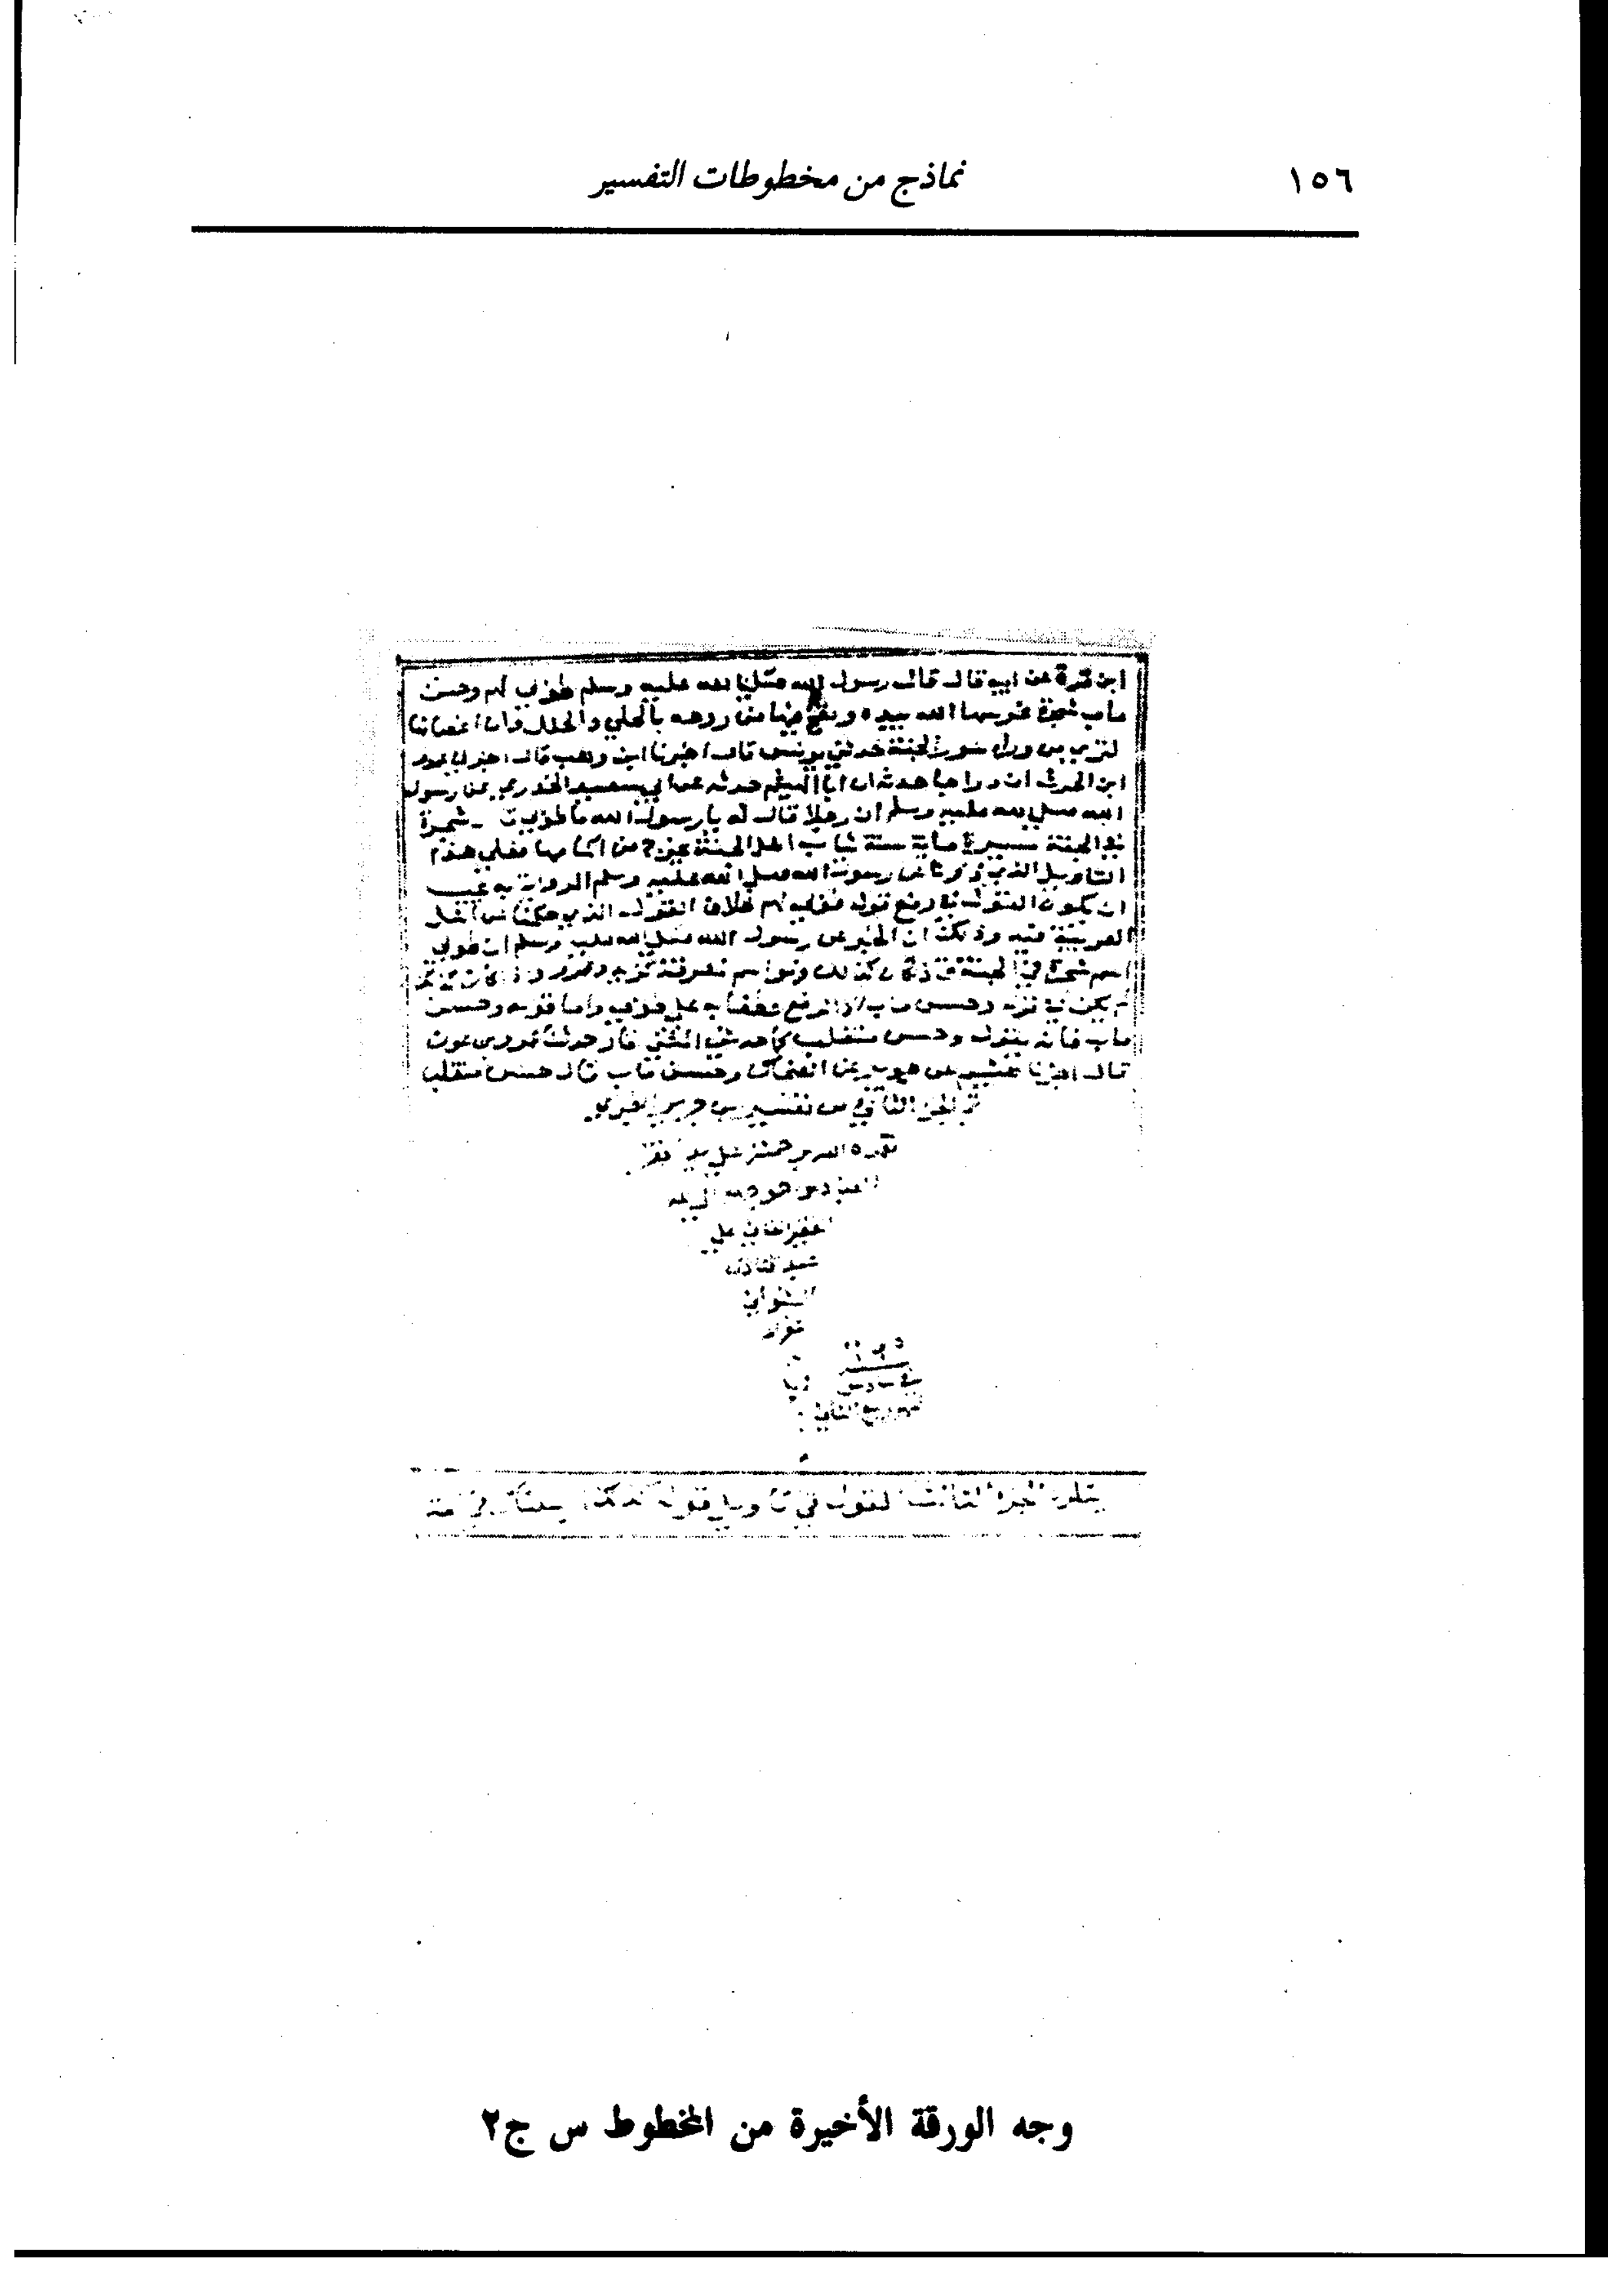 ١٥٦
نماذج من مخطوطات التفسير
ابن قرة عن ابيه قال قال رسول الله صلي الله عليه وسلم طوبي لهم وحسن
ماب شجرة غرسها الله بيده ونفخ فيها من روحه بالحلي والحلل وان اغصانها
لتري من ورا سور الجنة حدثني يونس قال اخبرنا ابن وهب قال اخبرني عمرو
ابن الحرث ان دراجا حدثه ان ابا الهيثم حدثه عن ابي سعيد الخدري عن رسول
الله صلي الله عليه وسلم ان رجلا قال له يا رسول الله ما طوبي شجرة
في الجنة مسيرة ماية سنة ثياب اهل الجنة تخرج من اكمامها فعلي هذا
التاويل الذي ذكرنا عن رسول الله صلي الله عليه وسلم الرواية به يجب
ان يكون القول في رفع قوله طوبي لهم خلاف القول الذي حكيناه عن اهل
العربية فيه وذلك ان الخبر عن رسول الله صلي الله عليه وسلم ان طوبي
اسم شجرة في الجنة فاذ كان كذلك فهو اسم لمعرفة كزيد وعمرو واذا كان كذلك
لم يكن في قوله وحسن ماب الا الرفع عطفا به علي طوبي واما قوله وحسن
ماب فانه يقول وحسن منقلب كما حدثني المثني قال حدثنا عمرو بن عون
قال اخبرنا هشيم عن جويبر عن الضحاك وحسن ماب قال حسن منقلب
تم الجزء الثاني من تفسير بن جرير الطبري
علي يد
الفقير الفاني علي
الثاني
يتلوه الجزء الثالث القول في تاويل قوله كذلك ارسلناك في امة
وجه الورقة الأخيرة من المخطوط س ج٢